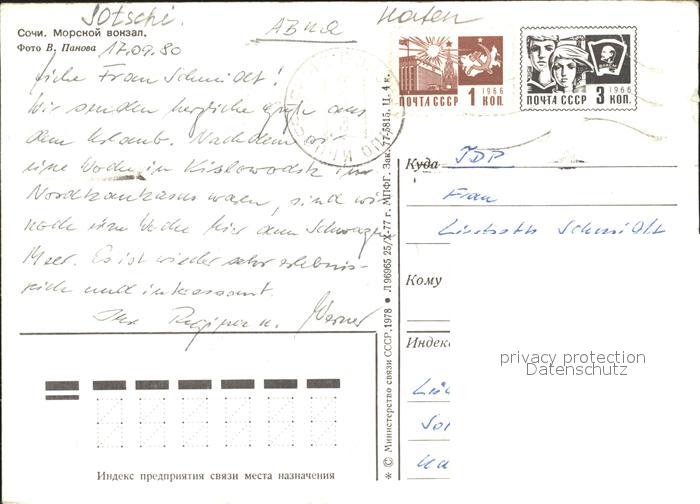 Sotschi.
АВИА
Hafen
Сочи. Морской вокзал.
Фото В. Панова
17.09.80
Liebe Frau Schmidt!
Wir senden herzliche Grüße aus
dem Urlaub. Nachdem wir
eine Woche in Kislowodsk im
Nordkaukasus waren, sind wir
noch eine Woche hier am Schwarzen
Meer. Es ist wieder sehr erlebnis-
reich und interessant.
Ihre Regina u. Werner
ПОЧТА СССР 1 КОП. 1966
ПОЧТА СССР 3 КОП. 1966
Куда
Frau
Schmidt
Кому
Индекс
privacy protection
Datenschutz
Индекс предприятия связи места назначения
* © Министерство связи СССР. 1978 • Л 96965 25/X-77 г. МПФГ. Зак. 77-5815. Ц. 4 к.